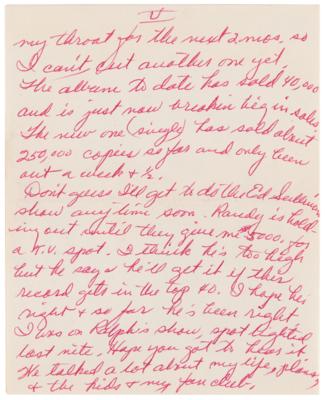 V
my throat for the next 2 mos. so
I can't cut another one yet.
The album to date has sold 40,000
and is just now breakin big in sales
The new one (single) has sold about
250,000 copies so far and only been
out a week & ½.
Don't guess I'll get to do the Ed Sullivan
show anytime soon. Randy is hold-
ing out until they give me $5000, for
a T.V. spot. I think he's too high
but he says he'll get it if this
record gets in the top 40. I hope hes
right & so far he's been right
I was on Ralph's show, spot lighted
last nite. Hope you got to hear it
We talked a lot about my life, plans,
& the kids & my fan club.